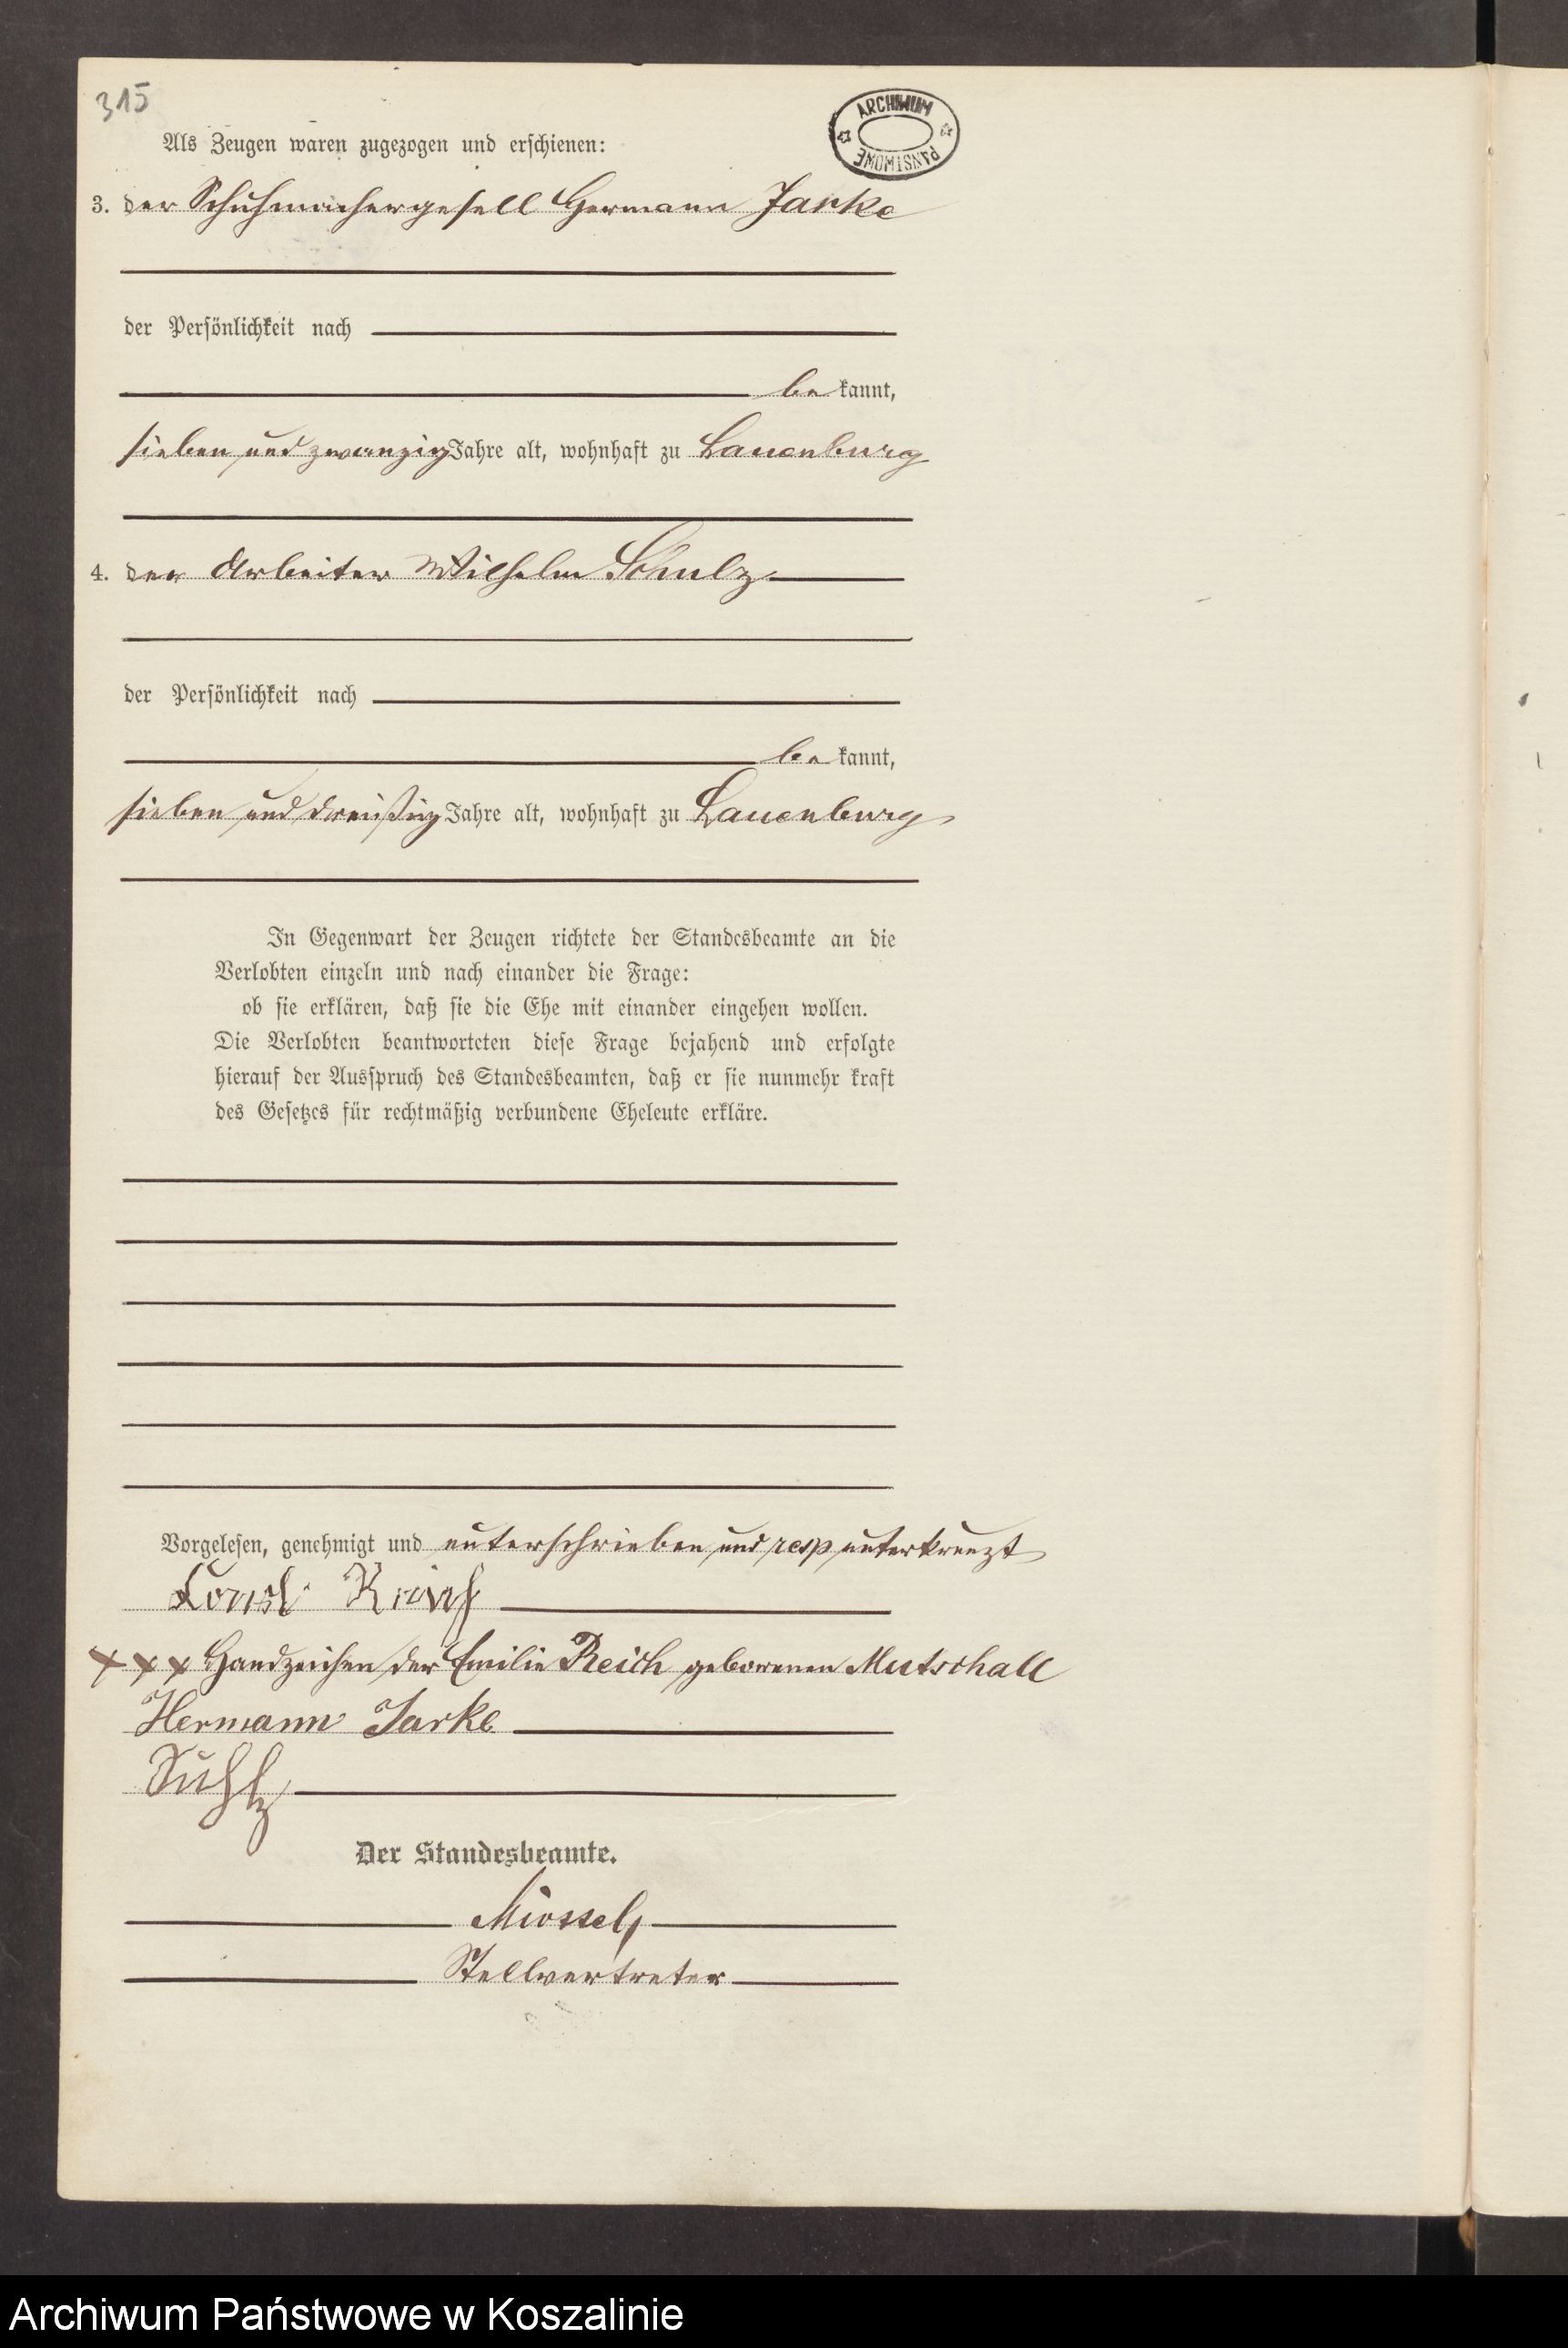 315
ARCHIWUM PAŃSTWOWE
Als Zeugen waren zugezogen und erschienen:
3. der Schuhmachergesell Hermann Jarke
der Persönlichkeit nach
be kannt,
sieben und zwanzig Jahre alt, wohnhaft zu Lauenburg
4. der Arbeiter Wilhelm Schulz
der Persönlichkeit nach
be kannt,
sieben und dreißig Jahre alt, wohnhaft zu Lauenburg
In Gegenwart der Zeugen richtete der Standesbeamte an die
Verlobten einzeln und nach einander die Frage:
ob sie erklären, daß sie die Ehe mit einander eingehen wollen.
Die Verlobten beantworteten diese Frage bejahend und erfolgte
hierauf der Ausspruch des Standesbeamten, daß er sie nunmehr kraft
des Gesetzes für rechtmäßig verbundene Eheleute erkläre.
Vorgelesen, genehmigt und unterschrieben und resp unterkreuzt
Reich
+ + + Handzeichen der Emilie Reich geborenen Mutschall
Hermann Jarke
Der Standesbeamte.
Stellvertreter
Archiwum Państwowe w Koszalinie